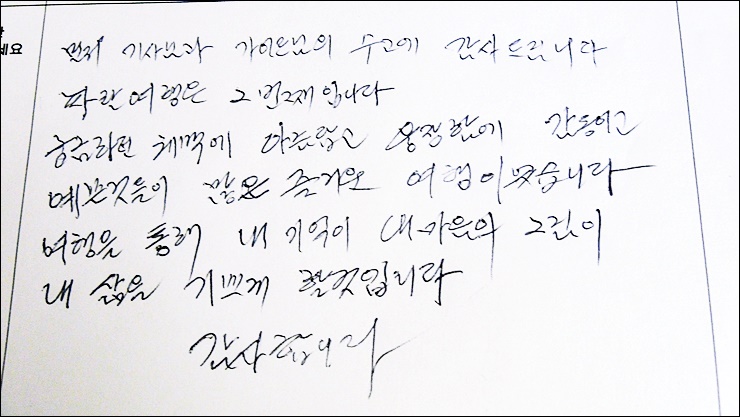 세요
먼저 기사님과 가이드님의 수고에 감사드립니다
파란여행은 2번째입니다
궁금하던 체코에 아름답고 웅장함에 감동이고
예쁜것들이 많은 즐거운 여행이였습니다
여행을 통해 내 기억이 내 마음의 그림이
내 삶을 기쁘게 할것입니다
감사합니다